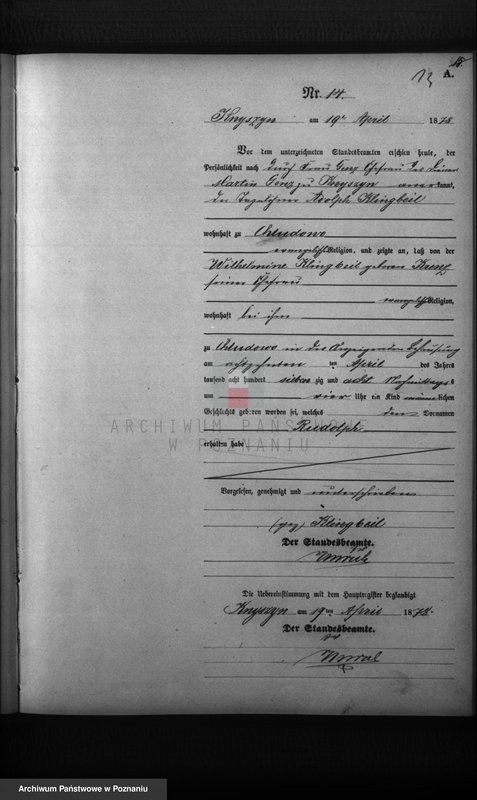 13
A.
Nr. 14.
am 19ten April 1878
Vor dem unterzeichneten Standesbeamten erschien heute, der
Persönlichkeit nach durch Frau Genz Ehefrau des
Martin Genz zu kannt,
der Adolph Klingbeil
wohnhaft zu Chludowo
evangelischer Religion, und zeigte an, daß von der
Wilhelmine Klingbeil geborene Krenz
seiner Ehefrau
evangelischer Religion,
wohnhaft bei ihm
zu Chludowo in des Anzeigenden Behausung
am achtzehnten ten April des Jahres
tausend acht hundert siebenzig und acht Nachmittags
um vier Uhr ein Kind männlichen
Geschlechts geboren worden sei, welches den Vornamen
Rudolph
erhalten habe
Vorgelesen, genehmigt und unterschrieben
(gez) Klingbeil
Der Standesbeamte.
Die Uebereinstimmung mit dem Hauptregister beglaubigt
am 19ten April 1878.
Der Standesbeamte.
ARCHIWUM PAŃSTWOWE
W POZNANIU
Archiwum Państwowe w Poznaniu